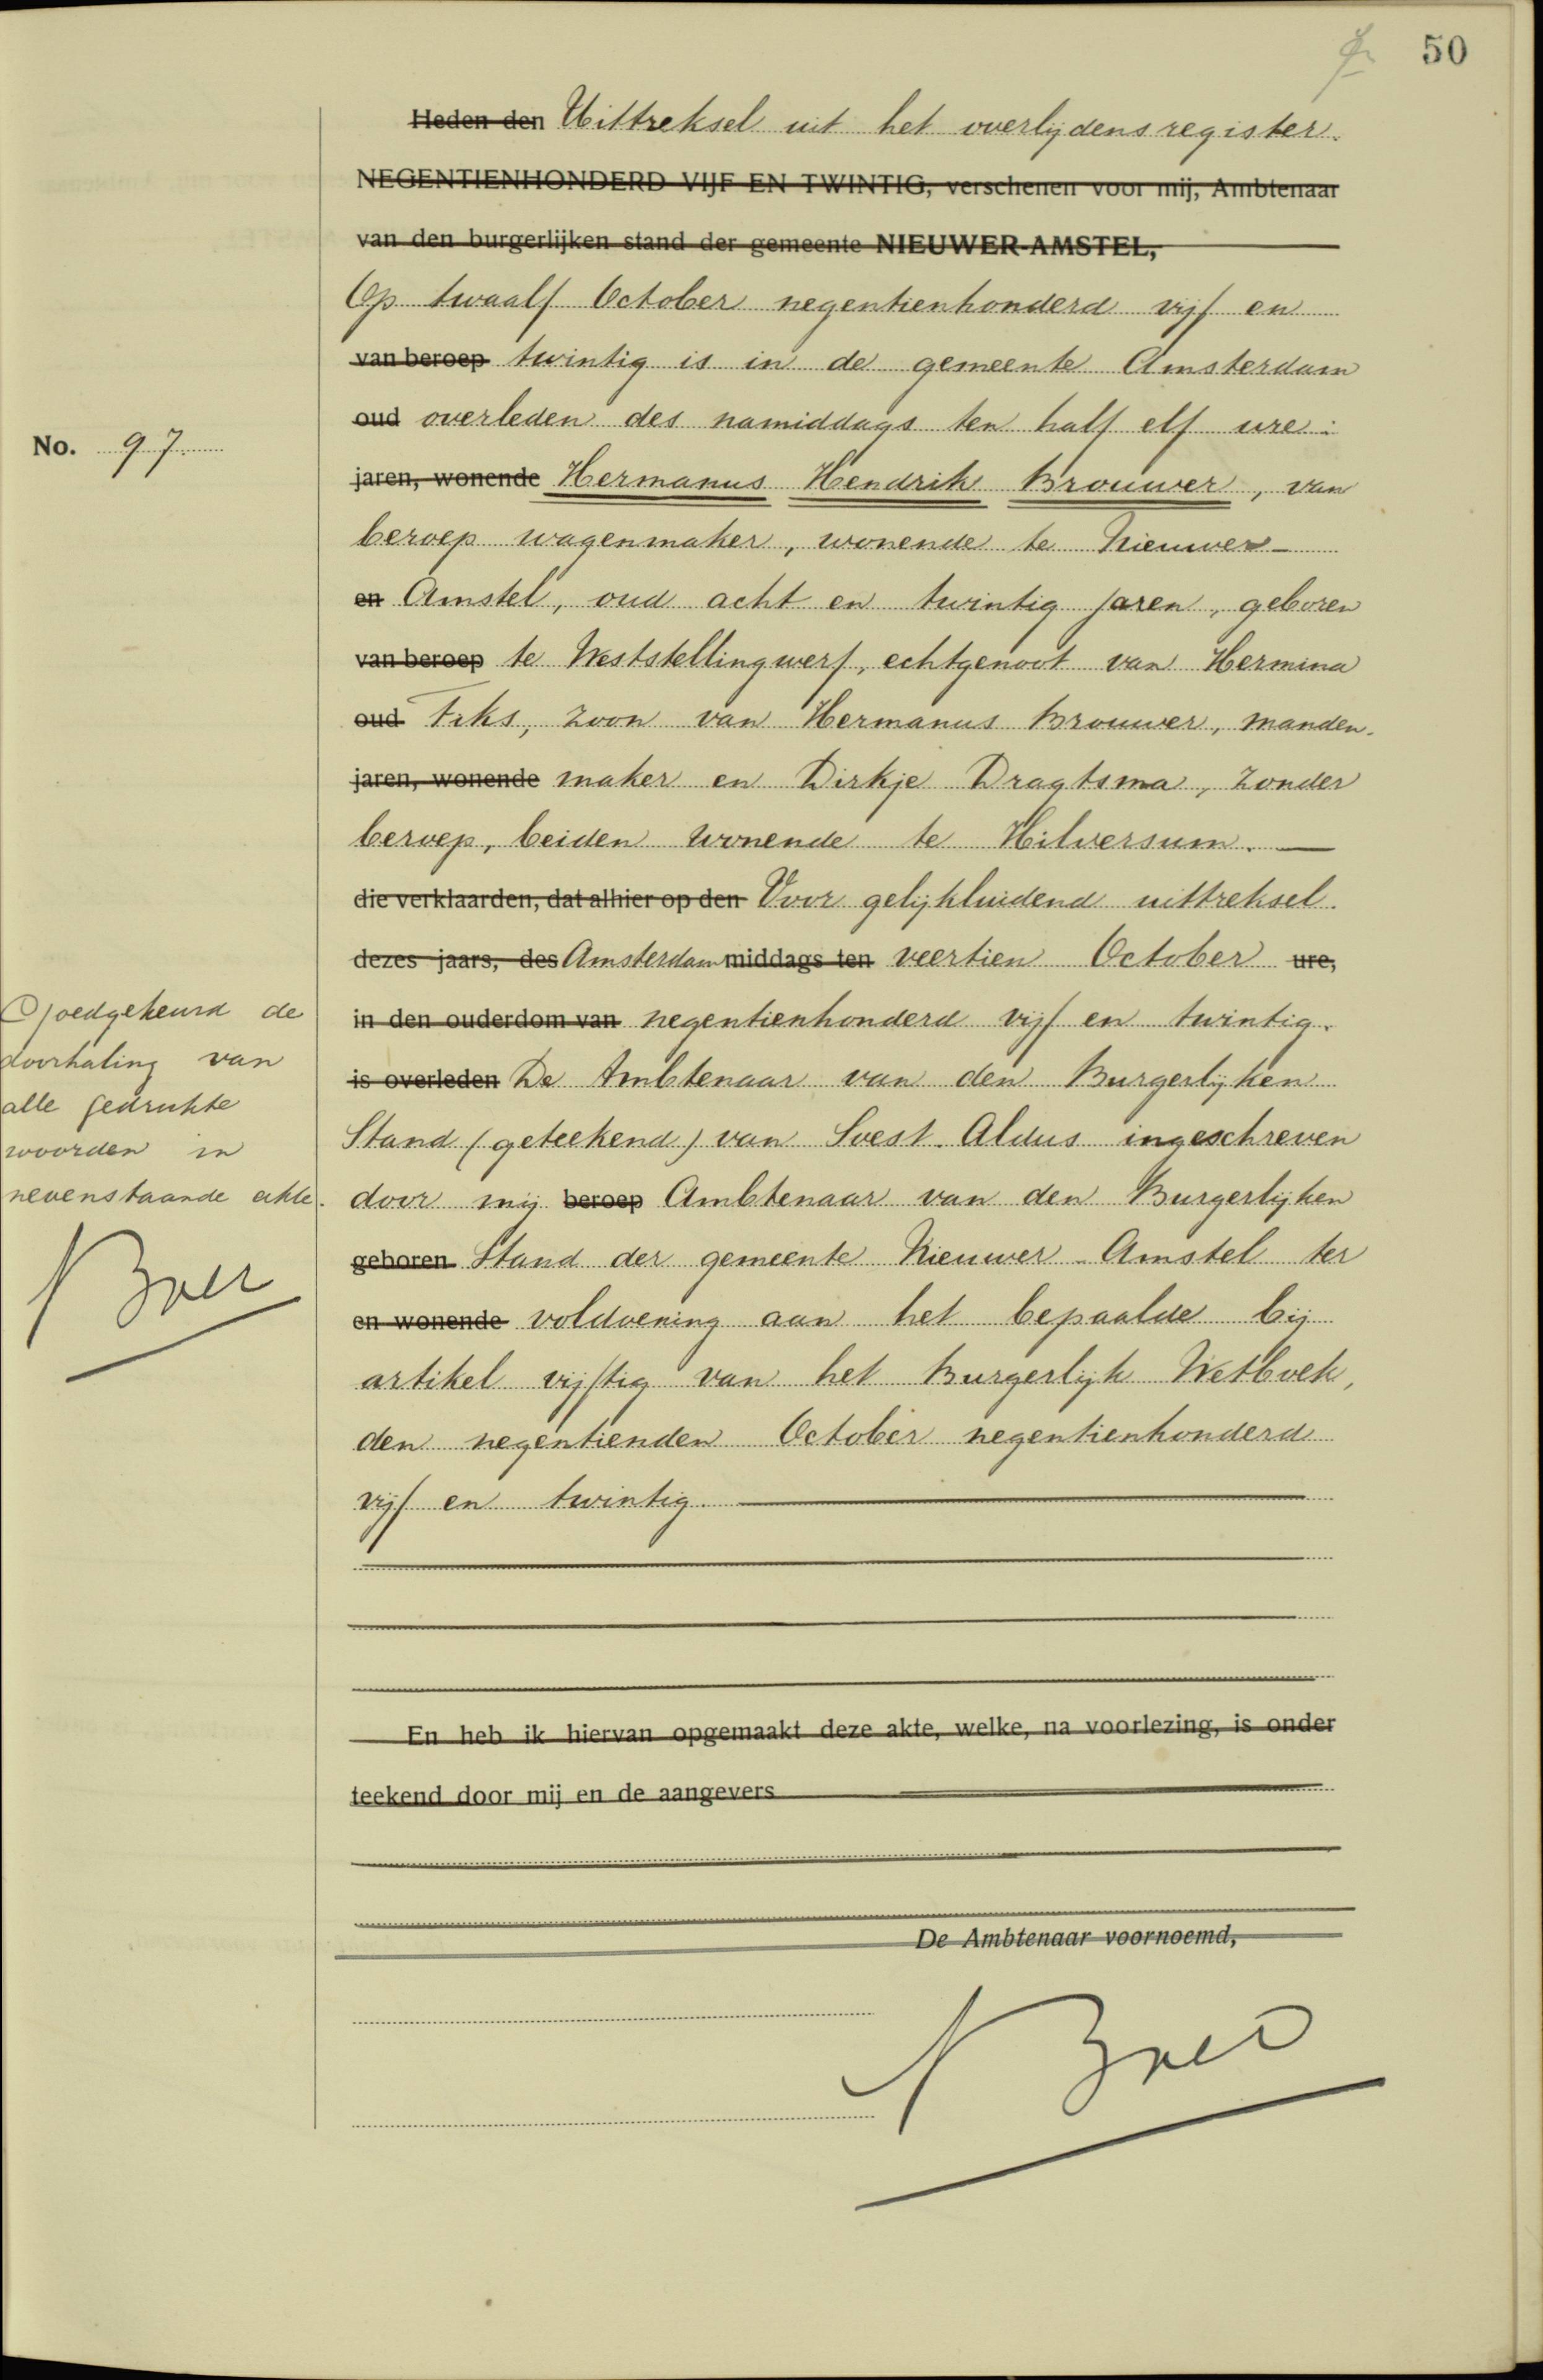 50
Heden den Uittreksel uit het overlijdensregister.
NEGENTIENHONDERD VIJF EN TWINTIG, verschenen voor mij, Ambtenaar
van den burgerlijken stand der gemeente NIEUWER-AMSTEL,
Op twaalf October negentienhonderd vijf en
van beroep twintig is in de gemeente Amsterdam
oud overleden des namiddags ten half elf ure:
No. 97
jaren, wonende Hermanus Hendrik Brouwer, van
beroep wagenmaker, wonende te Nieuwer-
en Amstel, oud acht en twintig jaren, geboren
van beroep te Weststellingwerf, echtgenoot van Hermina
oud Fiks, zoon van Hermanus Brouwer, manden-
jaren, wonende maker en Dirkje Dragtsma, zonder
beroep, beiden wonende te Hilversum.
die verklaarden, dat alhier op den Voor gelijkluidend uittreksel.
dezes jaars, des Amsterdam middags ten veertien October ure,
in den ouderdom van negentienhonderd vijf en twintig.
is overleden De Ambtenaar van den Burgerlijken
Stand (geteekend) van Soest. Aldus ingeschreven
door mij beroep Ambtenaar van den Burgerlijken
geboren Stand der gemeente Nieuwer-Amstel ter
en wonende voldoening aan het bepaalde bij
artikel vijftig van het Burgerlijk Wetboek,
den negentienden October negentienhonderd
vijf en twintig.
Goedgekeurd de
doorhaling van
alle gedrukte
woorden in
nevenstaande akte.
En heb ik hiervan opgemaakt deze akte, welke, na voorlezing, is onder
teekend door mij en de aangevers
De Ambtenaar voornoemd,